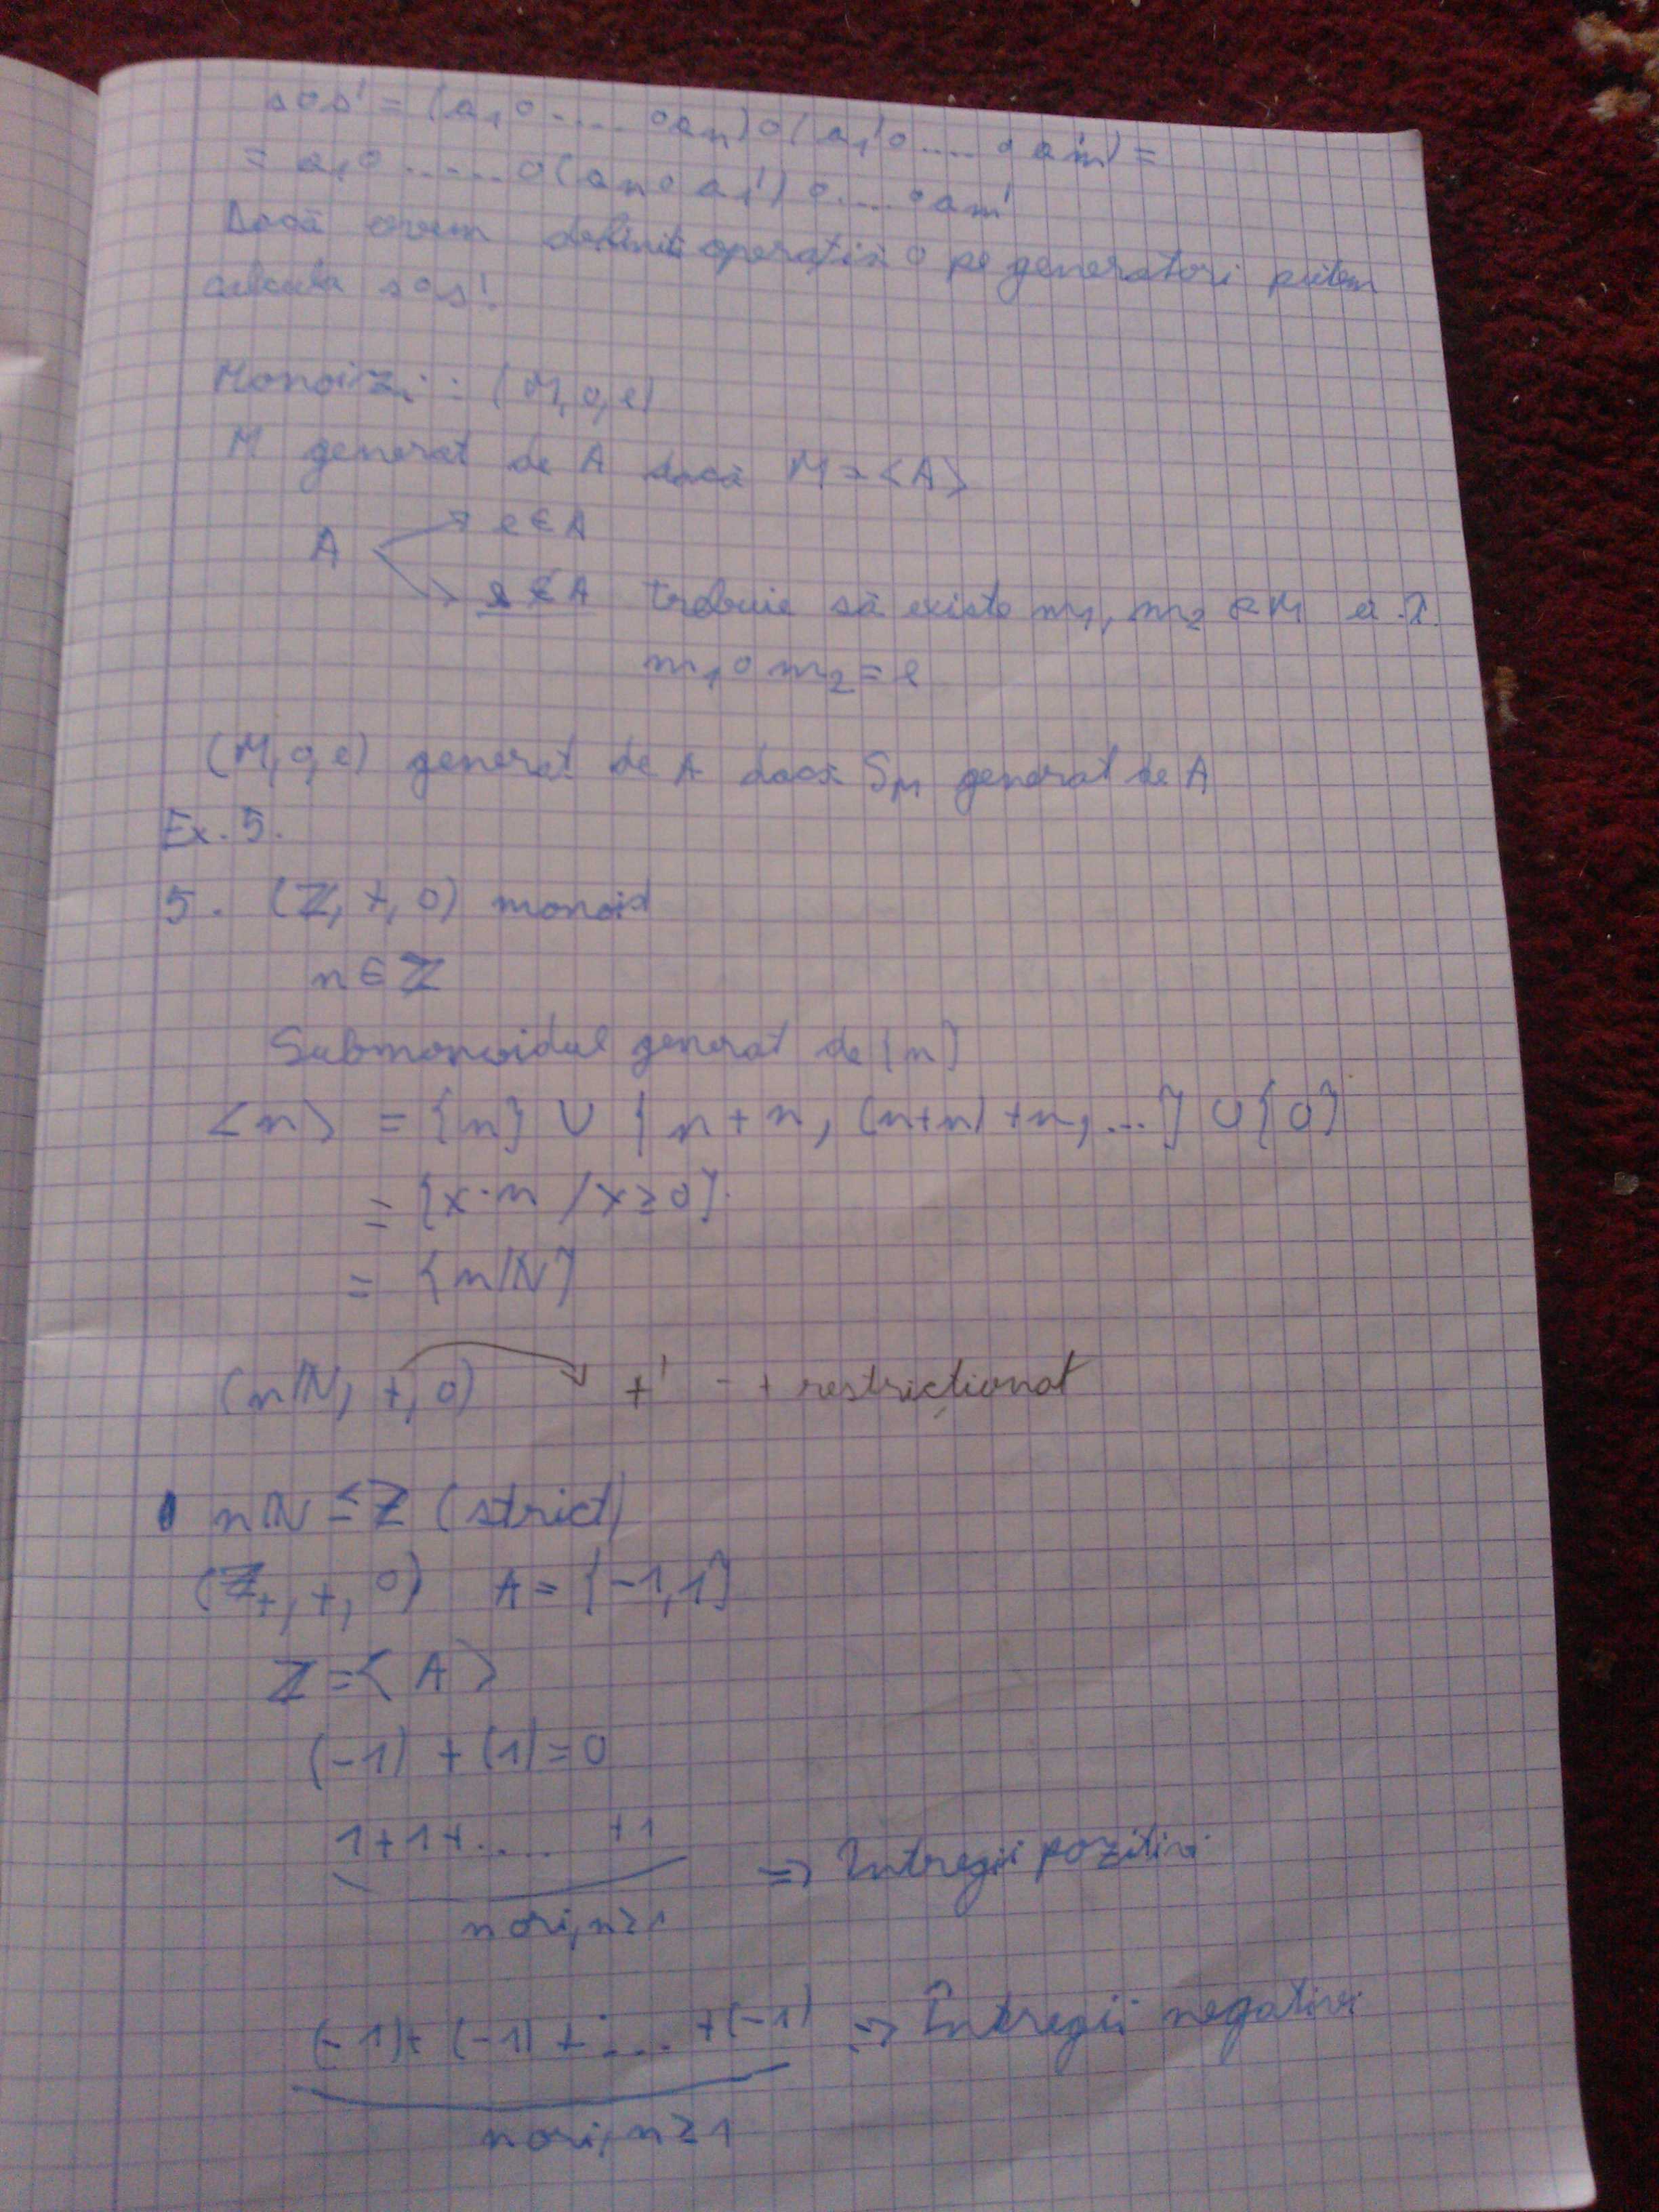 s∘s' = (a₁∘.....∘aₙ)∘(a₁'∘....∘am') =
= a₁∘......∘(an∘a₁')∘....∘am'
Dacă avem definită operația ∘ pe generatori putem
calcula s∘s'.
Monoizi: (M,∘,e)
M generat de A dacă M=<A>
A → e∈A
→ e∉A trebuie să existe m₁, m₂ ∈ M a.î.
m₁∘m₂=e
(M,∘,e) generat de A dacă S_M generat de A
Ex. 5.
5. (ℤ, +, 0) monoid
n∈ℤ
Submonoidul generat de {n}
<n> = {n} ∪ {n+n, (n+n)+n, ...} ∪ {0}
= {x·n / x≥0}
= {nℕ}
(nℕ, +, 0) → +' - + restricționat
nℕ ≤ ℤ (strict)
(ℤ₊, +, 0) A = {-1,1}
ℤ=<A>
(-1) + (1)=0
1+1+..... +1 => Întregii pozitivi
n ori, n≥1
(-1)+(-1)+....+(-1) => Întregii negativi
n ori, n≥1